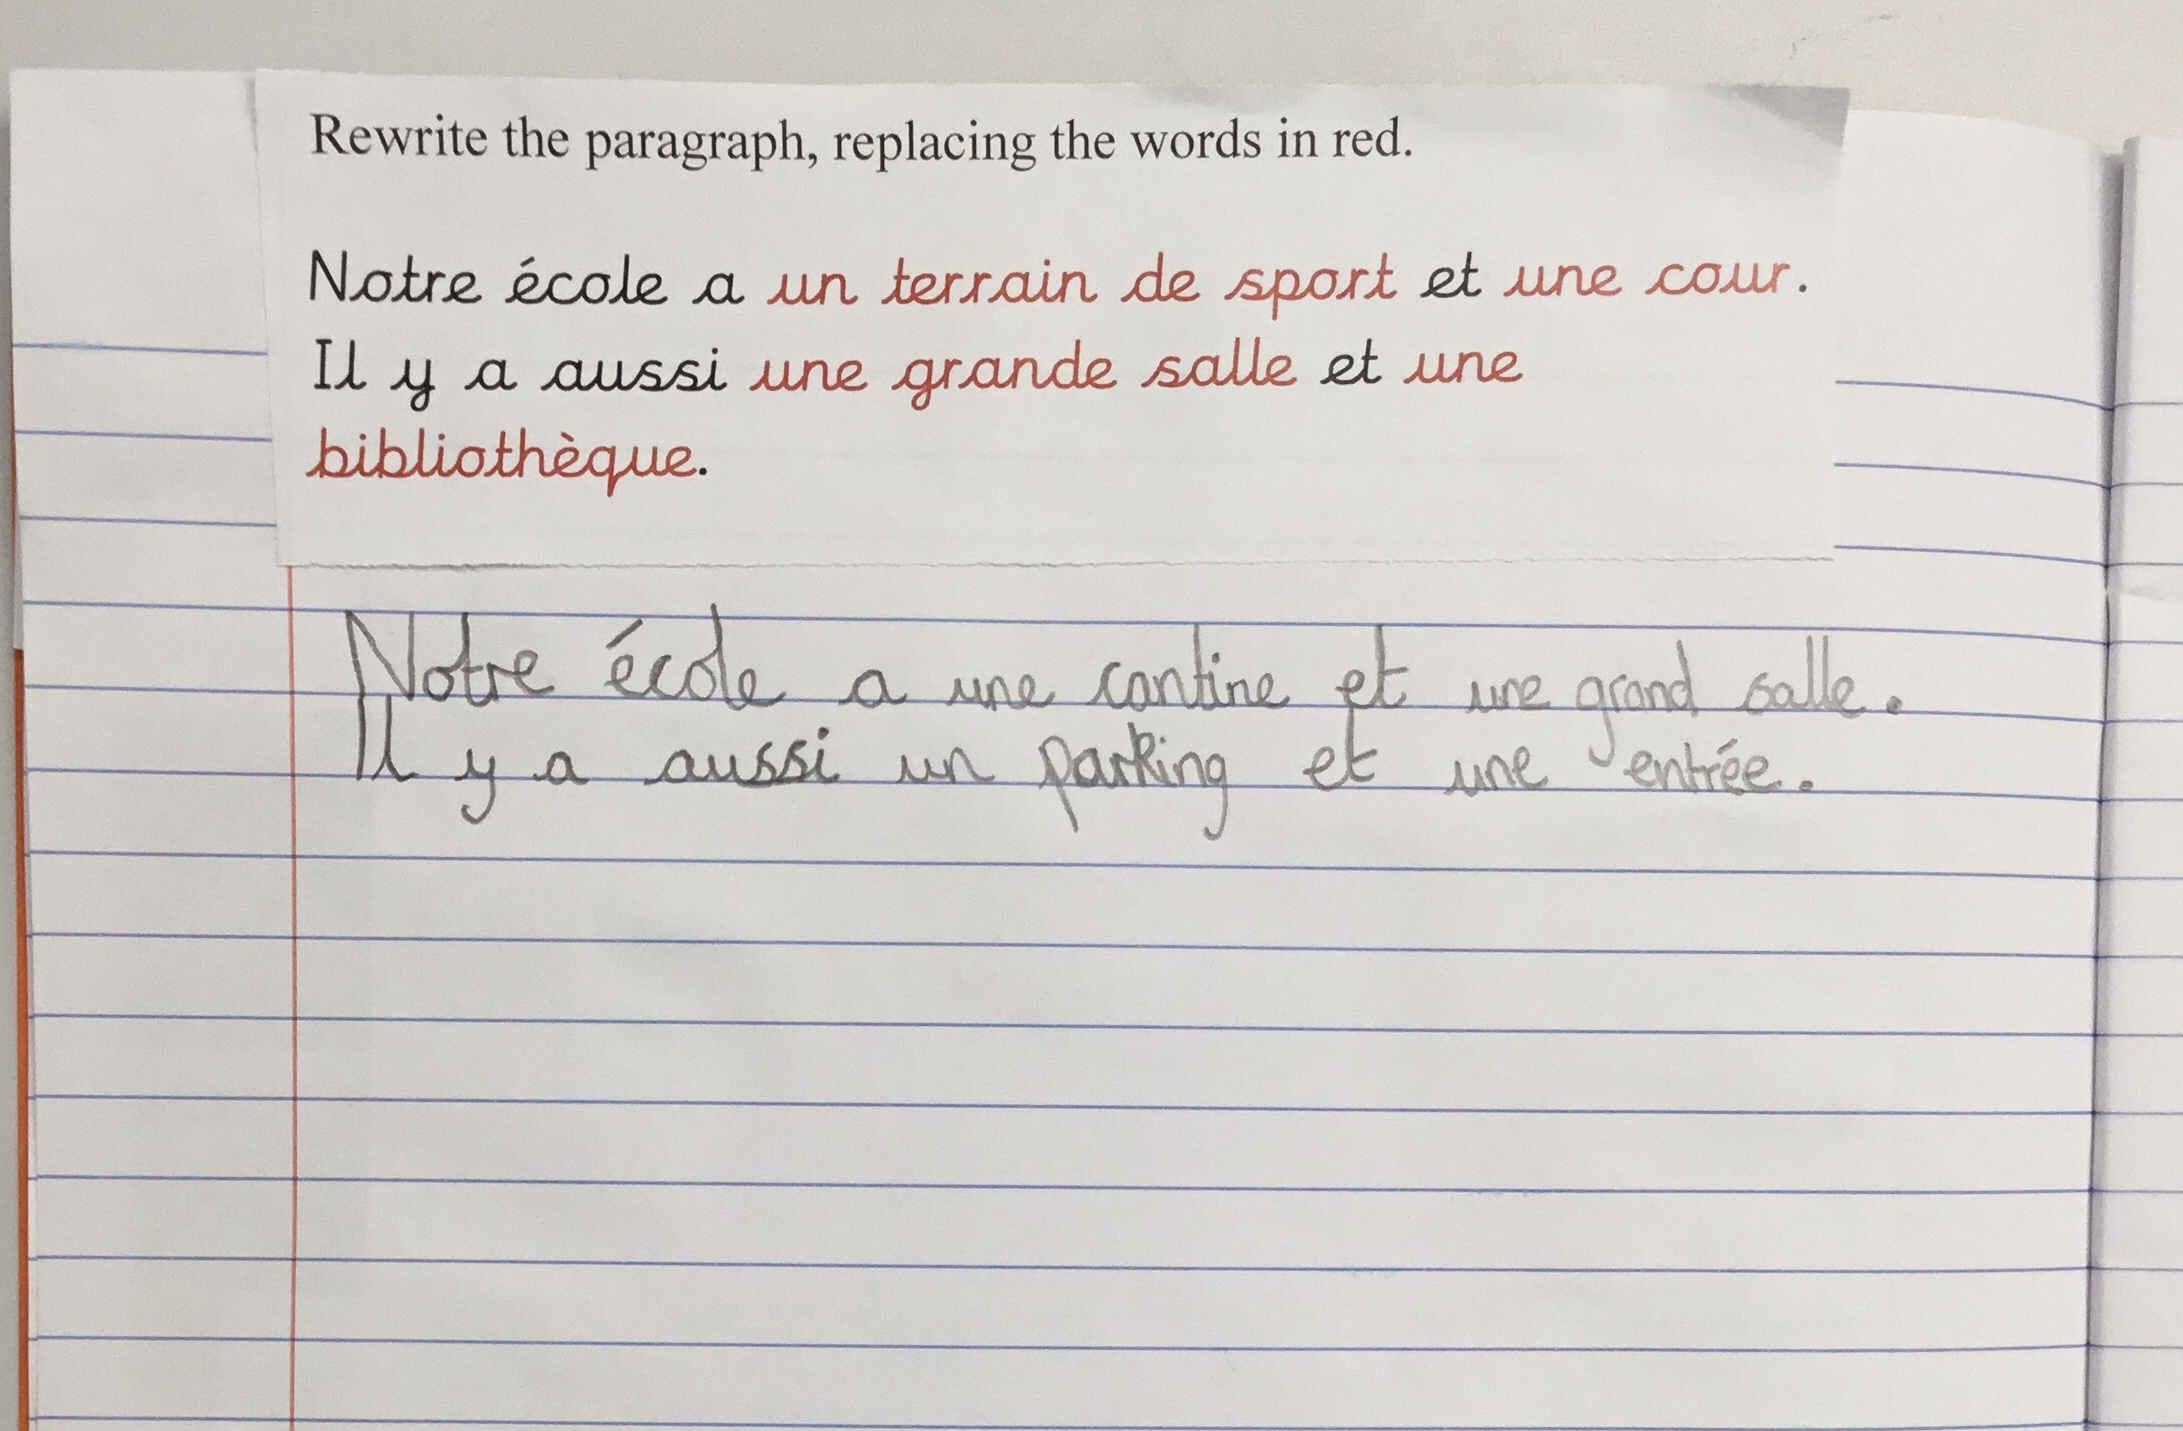 Rewrite the paragraph, replacing the words in red.
Notre école a un terrain de sport et une cour.
Il y a aussi une grande salle et une
bibliothèque.
Notre école a une cantine et une grand salle.
Il y a aussi un parking et une entrée.